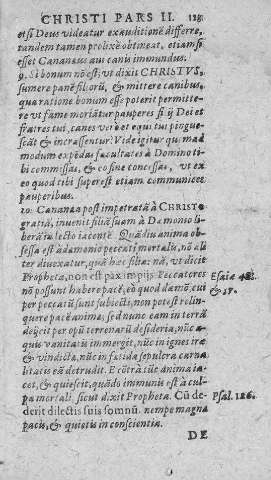 CHRISTI PARS II. 128.
et si Deus videatur exauditionē differre,
tandem tamen prolixè obtineat, etiamsi
esset Cananæus aut canis immundus.
9. Si bonum nō est, vt dixit CHRISTVS,
sumere panē filiorū, & mittere canibus,
qua ratione bonum esse poterit permitte-
re vt fame moriātur pauperes fi ij Dei et
fratres tui, canes verò et equi tui pingue-
scāt & incrassentur. Vide igitur quēad
modum expēdas facultates à Domino ti-
bi commissas, & eo fine concessas, vt ex
eo quod tibi superest etiam communices
pauperibus.
10. Cananæa post impetratā à CHRISTO
gratiā, invenit filiā suam à Dæmone li-
berā in lecto iacentē. Quādiu anima ob-
sessa est à dæmonio peccati mortalis, nō ali
ter divexatur, quā hæc filia: nā, vt dicit
Propheta, non est pax impijs. Peccatores Esaiæ 48.
nō possunt habere pacē, eò quod dæmō, cui & 57.
per peccatū sunt subiecti, non potest relin-
quere pacē anima: sed nunc eam in terrā
deijcit per opū terrenarū desideria, nūc a-
quis vanitatis immergit, nūc in ignes iræ
& vindictæ, nūc in fœtida sepulcra carna
litatis eā detrudit. E cōtrà tūc anima ia-
cet, & quiescit, quādo immunis est à cul-
pa mortali, sicut dixit Propheta. Cū de- Psal. 126.
derit dilectis suis somnū. nempe magna
pacis, & quietis in conscientia.
DE